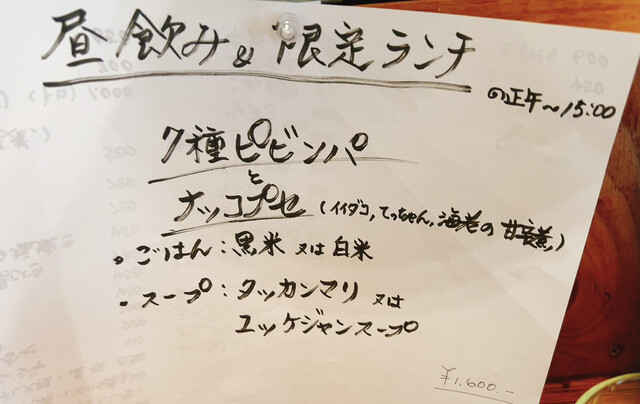 昼飲み&限定ランチ
の正午〜15:00
7種ピビンパ
と
ナッコプセ(イイダコ,てっちゃん,海老の甘辛煮)
・ごはん:黒米 又は 白米
・スープ:タッカンマリ 又は
ユッケジャンスープ
¥1.600.-